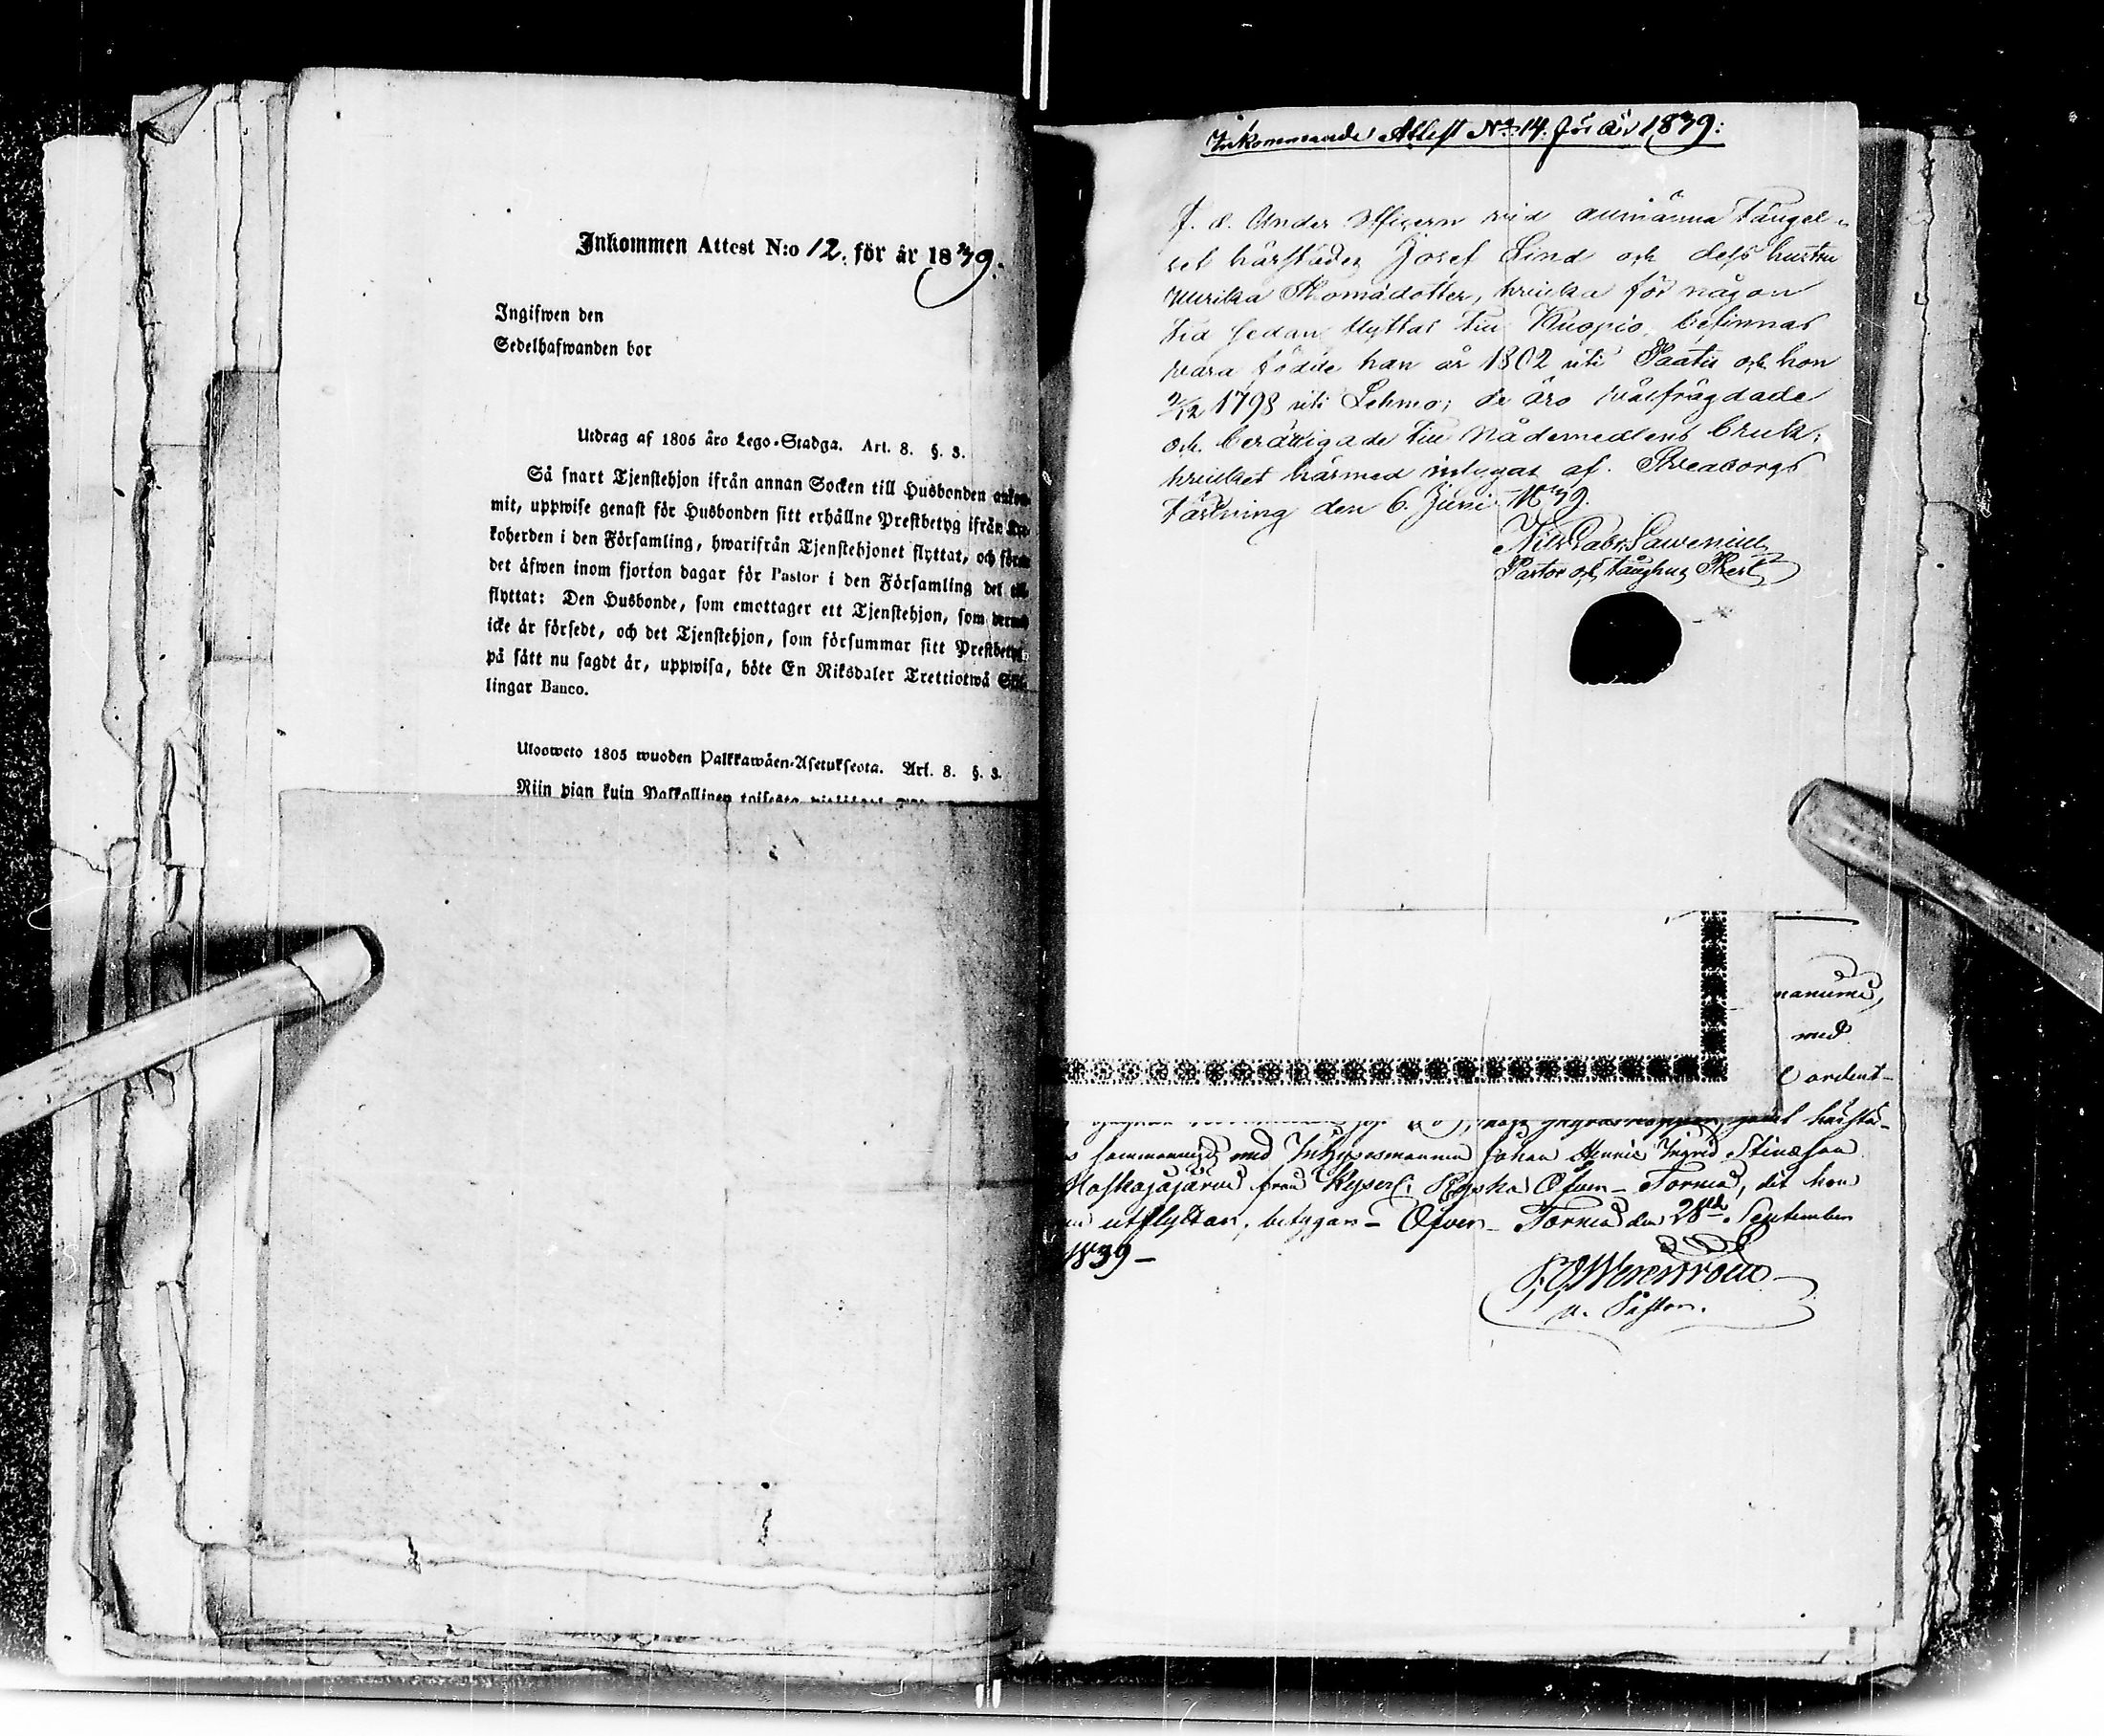 Inkommen Attest N:o 12. för år 1839.
Ingifwen den
Sedelhafwanden bor
Utdrag af 1805 års Lego-Stadga. Art. 8. §. 3.
Så snart Tjenstehjon ifrån annan Socken till Husbonden
mit, uppwise genast för Husbonden sitt erhållne Prestbetyg ifrån
koherden i den Församling, hwarifrån Tjenstehjonet flyttat, och
det äfwen inom fjorton dagar för Pastor i den Församling det
flyttat: Den Husbonde, som emottager ett Tjenstehjon, som
icke är försedt, och det Tjenstehjon, som försummar sitt Prestbetyg
på sätt nu sagdt är, uppwisa, böte En Riksdaler Trettiotwå
lingar Banco.
Ulosweto 1805 wuoden Palkkawäen-Asetuksesta. Art. 8. §. 3.
Niin pian kuin Palkollinen toisesta
Inkommande Attest No 14. för år 1839:
f. d. Under Officern vid allmänna Fängel-
set härstädes Josef Lind och dess hustru
Ulrika Thomädotter, hvilka för någon
tid sedan flyttat till Kuopio, befinnas
vara födde han år 1802 uti och hon
2/12 1798 uti Lehmo; de äro välfrägdade
och berättigade till Nådemedlens bruk;
hvilket härmed intygas af. Sveaborgs
Fästning den 6. Juni 1839.
Nils Gabr.
Pastor och
nanume
med
ordent-
härstä-
med Johan Henric Ingrid Stinasson
från Öfver-Torneå, dit hon
utflyttar, betygar- Öfver-Torneå den 28de September
1839-
v. Pastor.